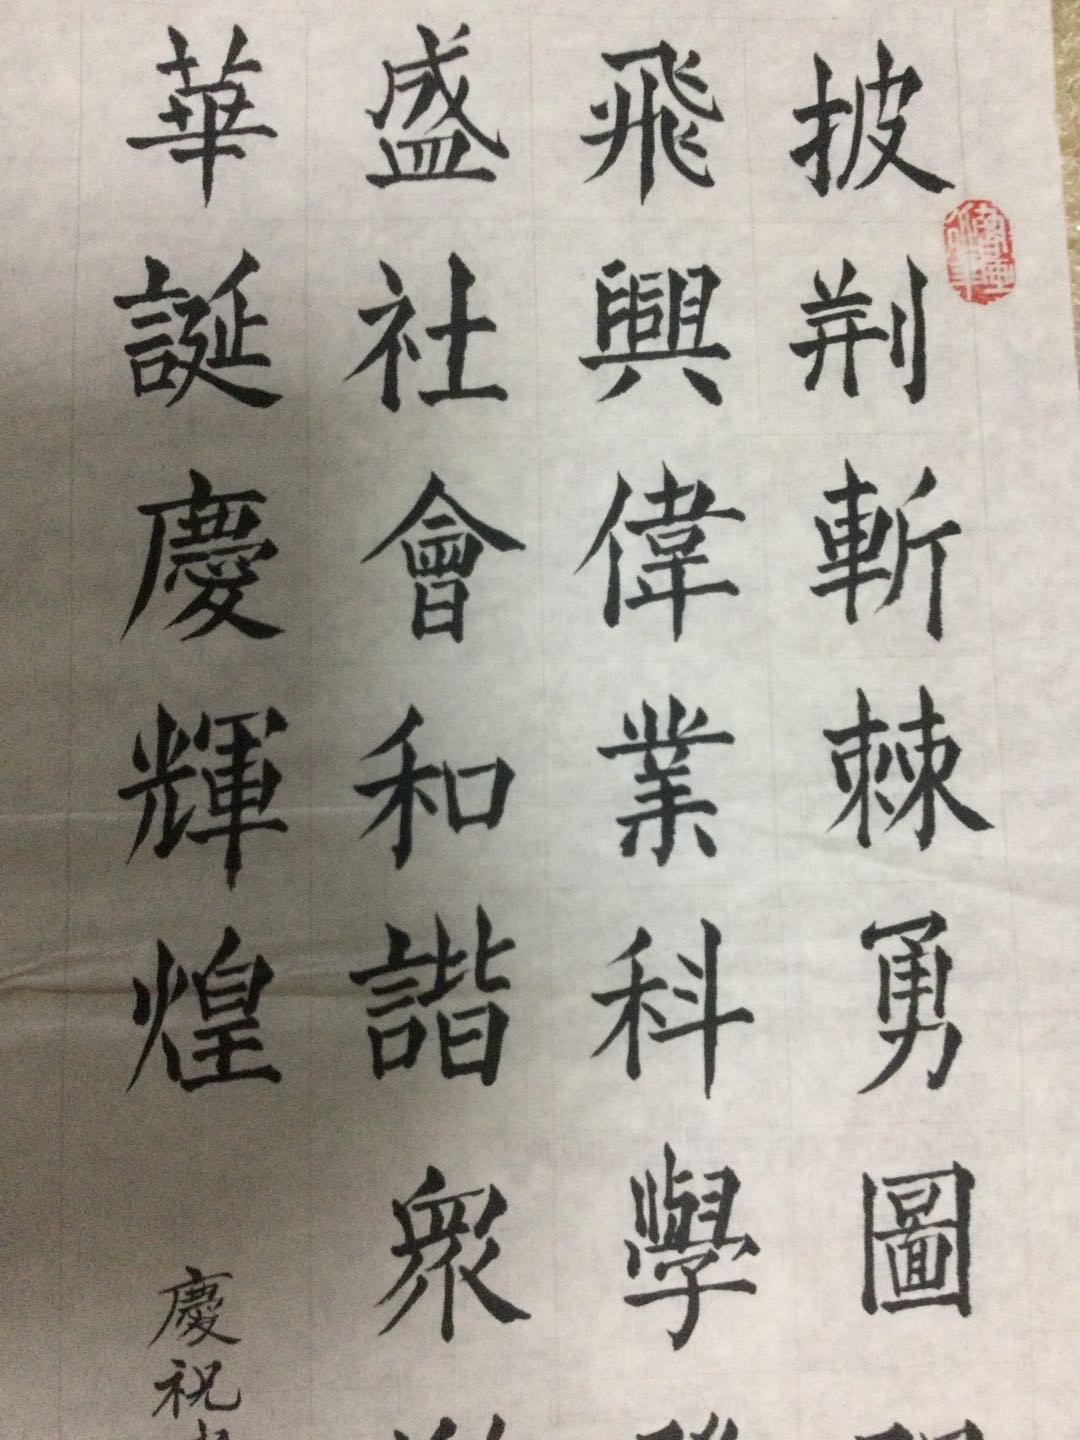 披荆斬棘勇圖
飛興偉業科學
盛社會和諧衆
華誕慶輝煌
慶祝